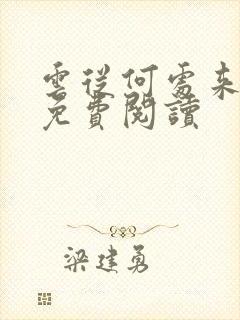 雲從何處來
免費閱讀
梁建勇